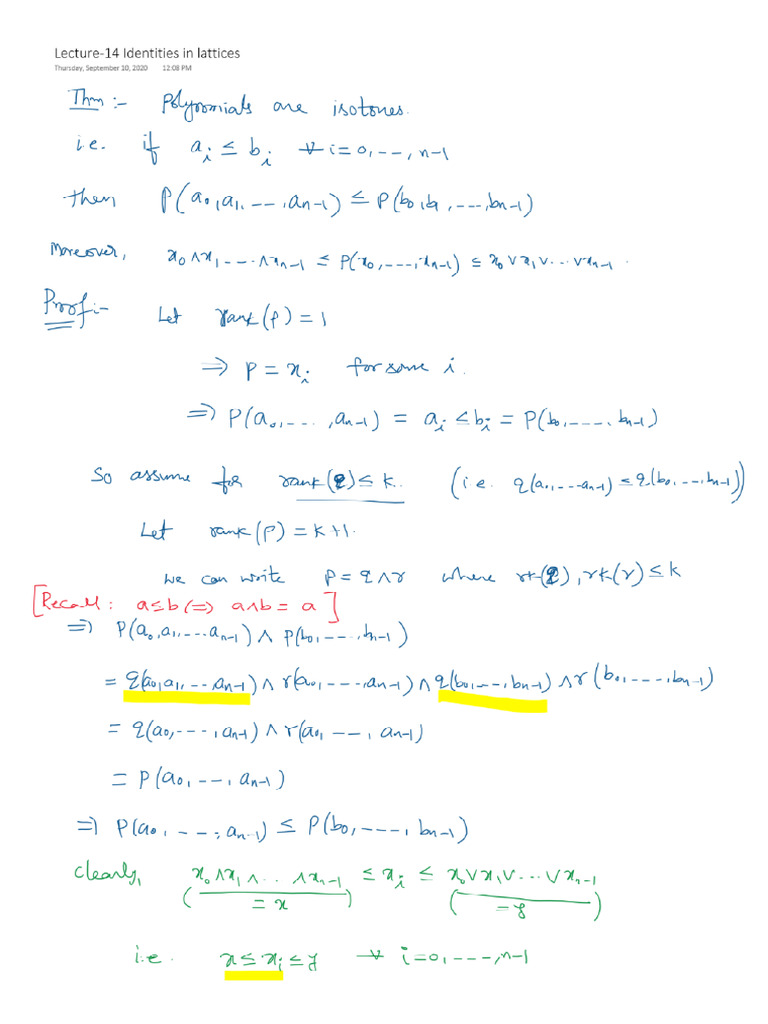 Lecture-14 Identities in lattices
Thursday, September 10, 2020 12:08 PM
Thm :- Polynomials are isotones.
i.e. if a_i ≤ b_i ∀ i=0,--,n-1
then P(a_0,a_1,--,a_n-1) ≤ P(b_0,b_1,--,b_n-1)
Moreover, x_0∧x_1--..∧x_n-1 ≤ P(x_0,---,x_n-1) ≤ x_0∨x_1∨...∨x_n-1.
Proof:- Let rank(P)=1
⇒ P = x_i for some i.
⇒ P(a_0,-...,a_n-1) = a_i ≤ b_i = P(b_0,---.,b_n-1)
So assume for rank(q)≤k. (i.e. q(a_0,---a_n-1) ≤ q(b_0,--,b_n-1))
Let rank(P)=k+1.
we can write P=q∧r where rk(q), rk(r)≤k
[Recall: a≤b ⇔ a∧b = a]
⇒ P(a_0,a_1,---.a_n-1) ∧ P(b_0,---.,b_n-1)
= q(a_0,a_1,--,a_n-1) ∧ r(a_0,---,a_n-1) ∧ q(b_0,---,b_n-1) ∧ r(b_0,----,b_n-1)
= q(a_0,---,a_n-1) ∧ r(a_0,--,a_n-1)
= P(a_0,--,a_n-1)
⇒ P(a_0,---,a_n-1) ≤ P(b_0,---,b_n-1)
Clearly, x_0∧x_1∧...∧x_n-1 ≤ x_i ≤ x_0∨x_1∨...∨x_n-1
( = x ) ( = y )
i.e. x ≤ x_i ≤ y ∀ i=0,---,n-1